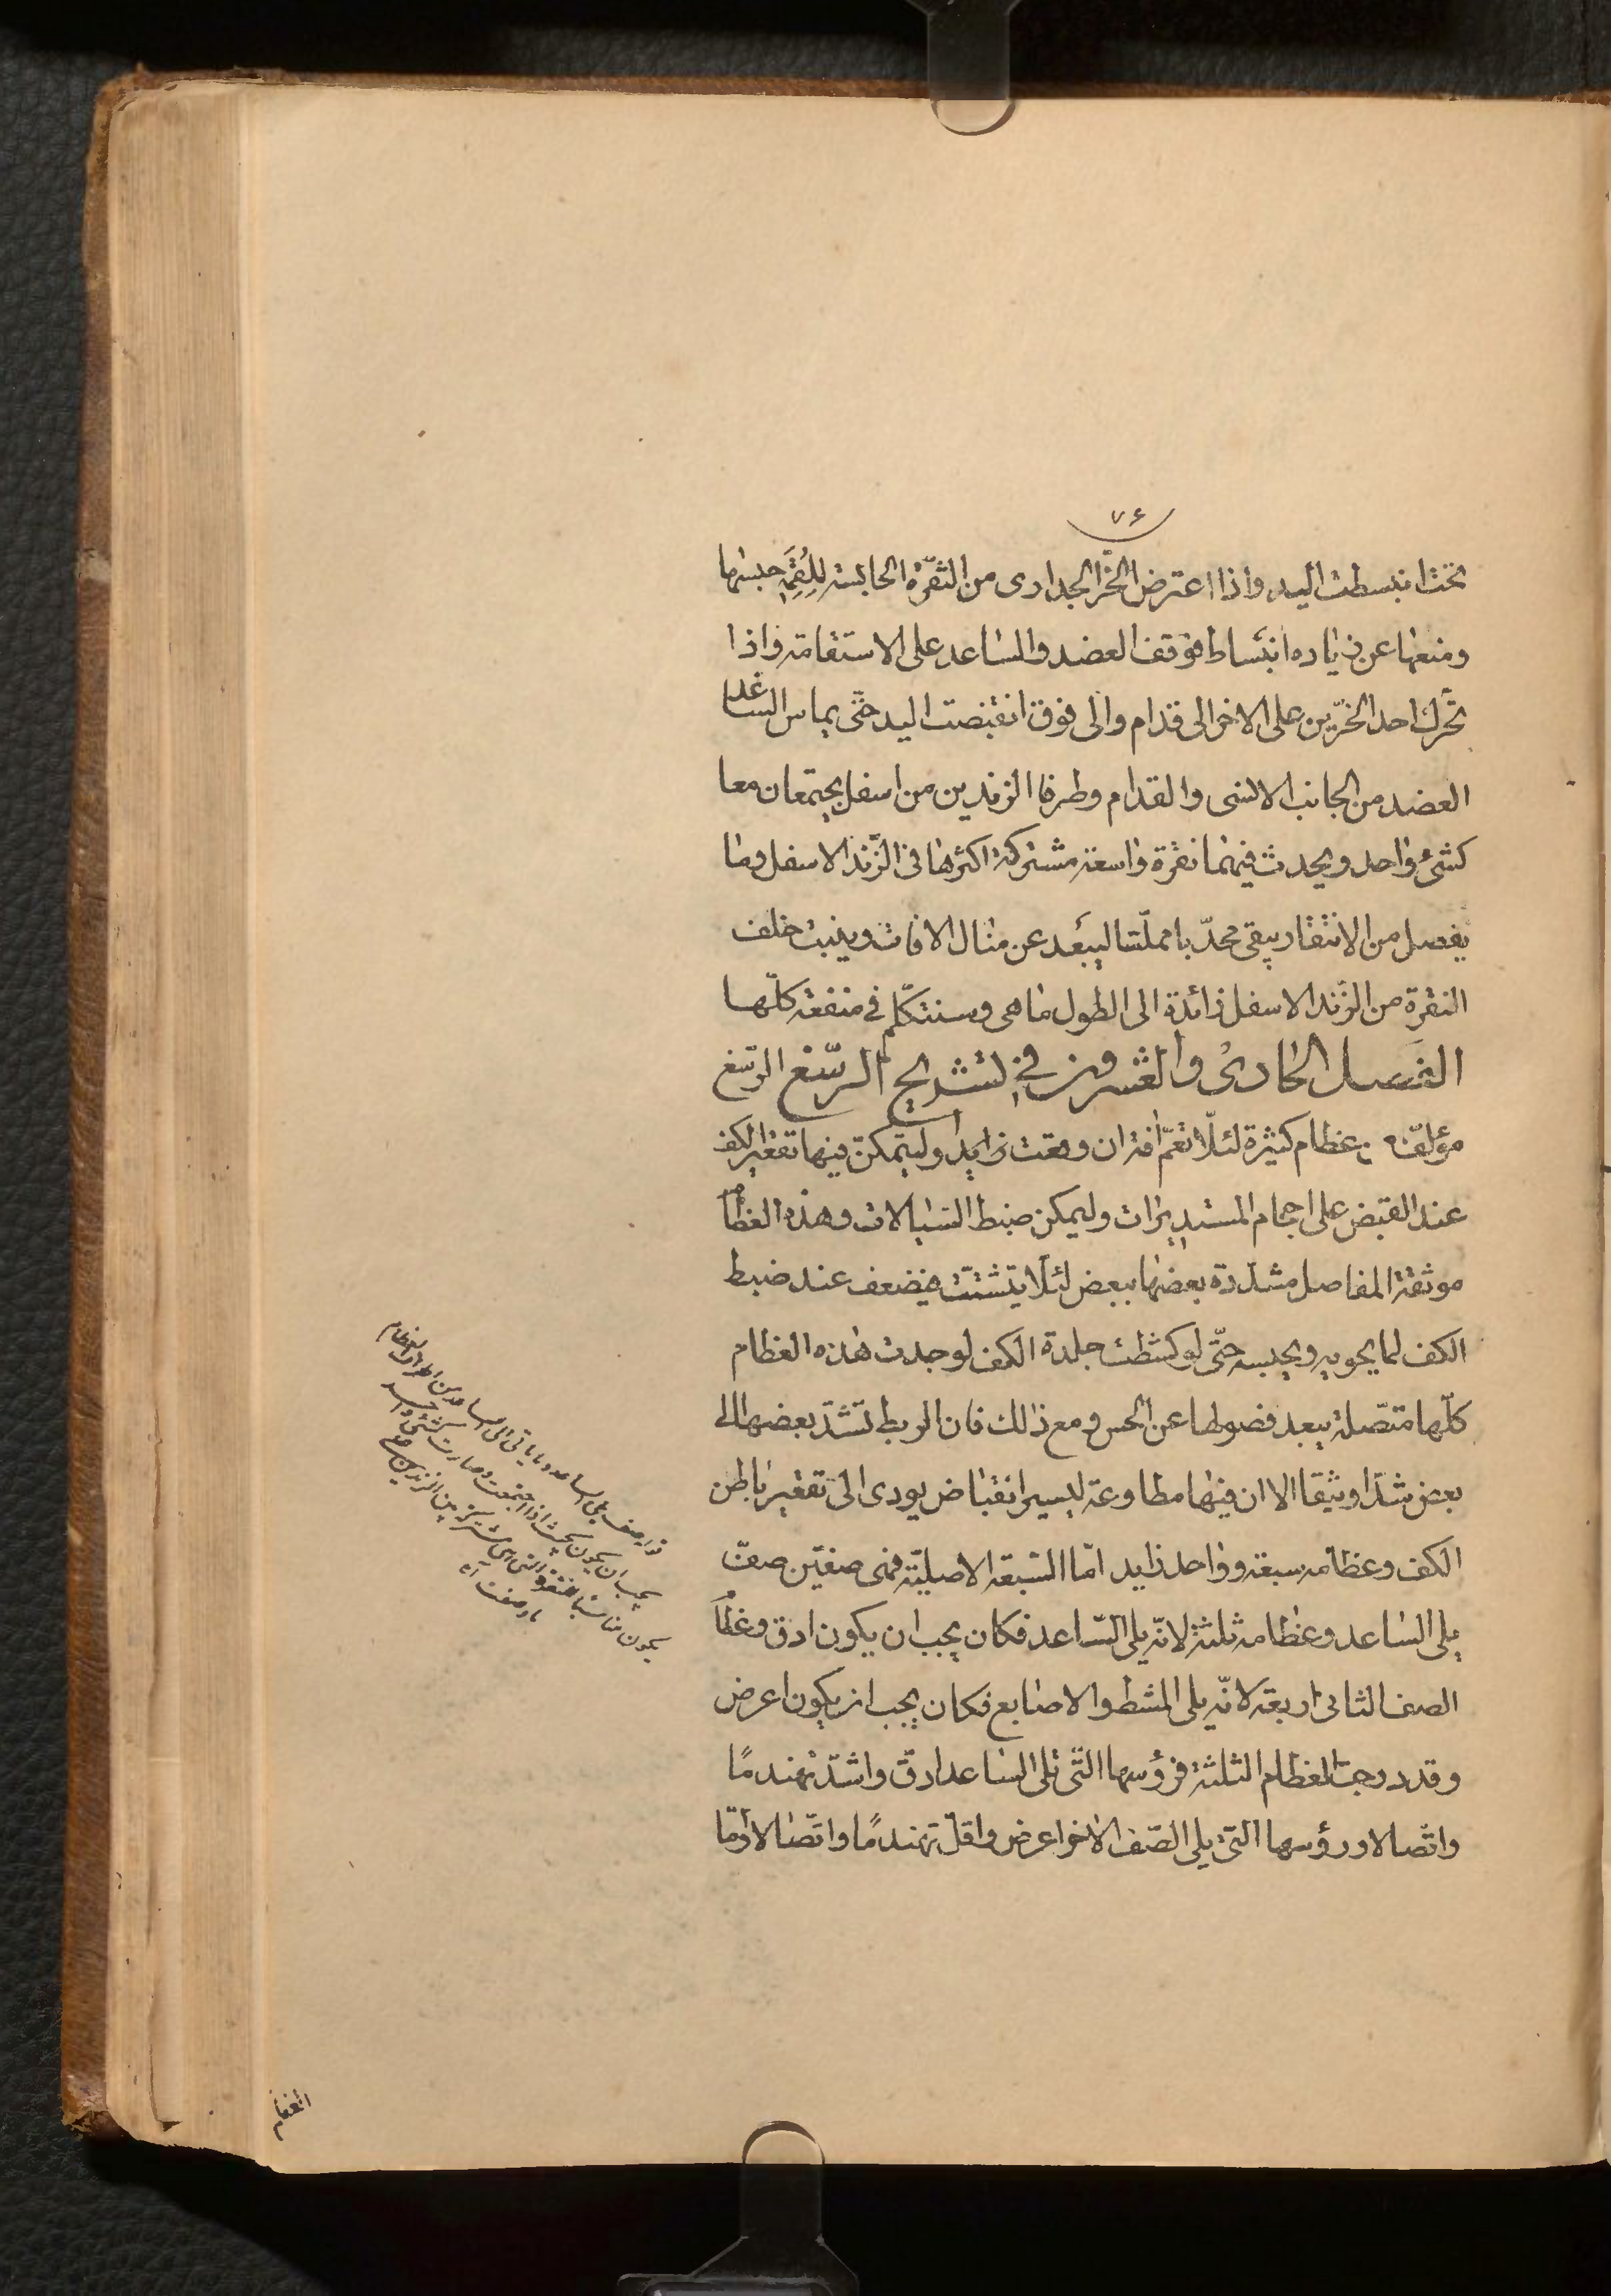 ٧۶
تحت انبسطت اليد واذا اعترض الحزّ الجدارى من النّقرة الحابسة للقمة حبسها
ومنعها عن زياده انبساط فوقف العضد والساعد على الاستقامة واذا
تحرّك احد الحزّين على الاخر الى قدام والى فوق انقبضت اليد حتّى يماس الساعد
العضد من الجانب الانسى والقدام وطرفا الزندين من اسفل يجتمعان معا
كشئ واحد ويحدث فيهما نقرة واسعة مشتركة اكثرها فى الزّند الاسفل وما
يفصل من الانتقار يبقى محدّبا مملّسا ليبعد عن منال الافات وينبت خلف
النقرة من الزّند الاسفل زائدة الى الطول ما هى وسنتكلّم فى منفعة كلّها
الفصل الحادى والعشرون فى تشريح الرسّغ الرسّغ
مؤلّف من عظام كثيرة لئلّا تعمّ افة ان وقعت زايدا وليتمكن فيها تقعير الكف
عند القبض على اجمام المستديرات وليمكن ضبط السّيالات وهذه العظام
موثقة المفاصل مشدّدة بعضها ببعض لئلّا يتشتت فيضعف عند ضبط
الكف لما يحويه ويحبسه حتّى لو كشطت جلدة الكف لوجدت هذه العظام
كلّها متّصلة يبعد فصولها عن الحس ومع ذالك فان الربط تشدّ بعضها الى
بعض شدّا وثيقا الا ان فيها مطاوعة ليسير انقباض يودى الى تقعير باطن
الكف وعظامه سبعة وواحد زايد امّا السّبعة الاصليّة فهى صفيّن صفّ
يلى الساعد وعظامه ثلثة لانّه يلى السّاعد فكان يجب ان يكون ادق وعظام
الصف الثانى اربعة لانّه يلى المشط والاصابع فكان يجب ان يكون اعرض
وقد درجت العظام الثلثة فرؤسها التّى تلى الساعد ادقّ واشدّ تهندمًا
واتّصالا ورؤسها التى يلى الصّف الاخر اعرض واقلّ تهندمًا واتّصالا وامّا
يجب ان يكون بحيث اذا اجتمعت وصارت كشئ واحد